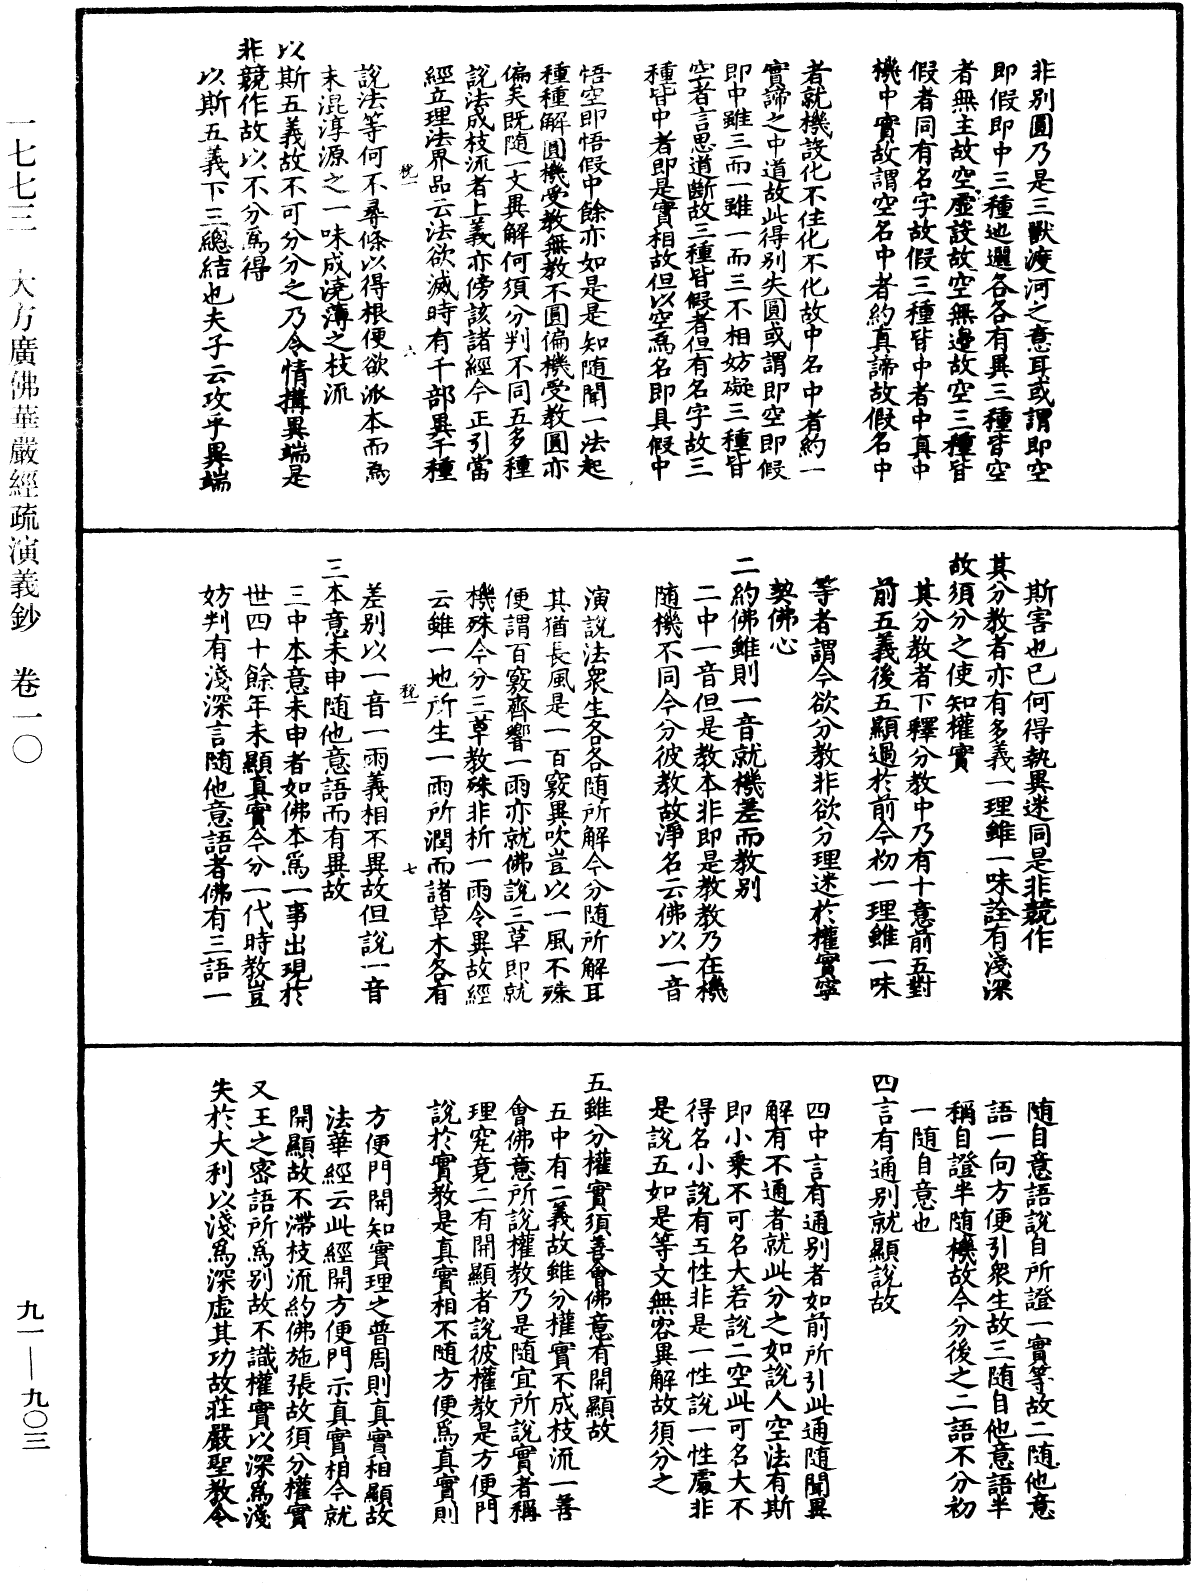 非別圓乃是三獸渡河之意耳或謂即空
即假即中三種迆邐各各有異三種皆空
者無主故空虛設故空無邊故空三種皆
假者同有名字故假三種皆中者中真中
機中實故謂空名中者約真諦故假名中
者就機設化不住化不化故中名中者約一
實諦之中道故此得別失圓或謂即空即假
即中雖三而一雖一而三不相妨礙三種皆
空者言思道斷故三種皆假者但有名字故三
種皆中者即是實相故但以空為名即具假中
悟空即悟假中餘亦如是是知隨聞一法起
種種解圓機受教無教不圓偏機受教圓亦
偏矣既隨一文異解何須分判不同五多種
說法成枝流者上義亦傍該諸經今正引當
經立理法界品云法欲滅時有千部異千種
說法等何不尋條以得根便欲派本而為
末混淳源之一味成澆薄之枝流
以斯五義故不可分分之乃令情搆異端是
非競作故以不分為得
以斯五義下三總結也夫子云攻乎異端
斯害也已何得執異迷同是非競作
其分教者亦有多義一理雖一味詮有淺深
故須分之使知權實
其分教者下釋分教中乃有十意前五對
前五義後五顯過於前今初一理雖一味
等者謂今欲分教非欲分理迷於權實寧
契佛心
二約佛雖則一音就機差而教別
二中一音但是教本非即是教教乃在機
隨機不同今分彼教故淨名云佛以一音
演說法眾生各各隨所解今分隨所解耳
其猶長風是一百竅異吹豈以一風不殊
便謂百竅齊響一雨亦就佛說三草即就
機殊今分三草教殊非析一雨令異故經
云雖一地所生一雨所潤而諸草木各有
差別以一音一雨義相不異故但說一音
三本意未申隨他意語而有異故
三中本意未申者如佛本為一事出現於
世四十餘年未顯真實今分一代時教豈
妨判有淺深言隨他意語者佛有三語一
隨自意語說自所證一實等故二隨他意
語一向方便引眾生故三隨自他意語半
稱自證半隨機故今分後之二語不分初
一隨自意也
四言有通別就顯說故
四中言有通別者如前所引此通隨聞異
解有不通者就此分之如說人空法有斯
即小乘不可名大若說二空此可名大不
得名小說有五性非是一性說一性處非
是說五如是等文無容異解故須分之
五雖分權實須善會佛意有開顯故
五中有二義故雖分權實不成枝流一善
會佛意所說權教乃是隨宜所說實者稱
理究竟二有開顯者說彼權教是方便門
說於實教是真實相不隨方便為真實則
方便門開知實理之普周則真實相顯故
法華經云此經開方便門示真實相今就
開顯故不滯枝流約佛施張故須分權實
又王之密語所為別故不識權實以深為淺
失於大利以淺為深虛其功故莊嚴聖教令
稅一　六
稅一　七
一七七三　大方廣佛華嚴經疏演義鈔　卷一〇
九一—九〇三